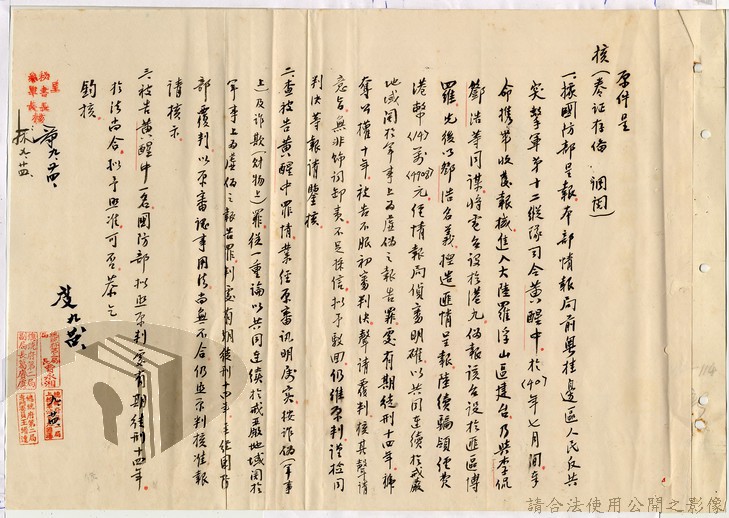 原件呈
核(卷証存備調閱)
一、據國防部呈報本部情報局前粵桂邊區人民反共
突擊軍第十二縱隊司令黃醒中於(40)年七月間奉
命携帶收發報機進入大陸羅浮山區建台乃與李侃
鄧浩等同謀將電台設於港九偽報該台設於匪區博
羅先後以鄧浩名義捏造匪情呈報陸續騙領經費
港幣元經情報局偵審明確以共同連續於戒嚴
地域関於軍事上為虛偽之報告罪處有期徒刑十四年褫
奪公權十年被告不服初審判決聲請覆判核其聲請
意旨無非飾詞卸責不足採信拟予駁回仍維原判謹檢同
判決等報請鑒核
二、查被告黃醒中罪情業經原審訊明屬實按詐偽(軍事
上)及詐欺(財物上)罪從一重論以共同連續於戒嚴地域関於
軍事上為虛偽之報告罪判處有期徒刑十四年並經國防
部覆判以原審認事用法尚無不合仍照原判核准報
請核示
三、被告黃醒中一名國防部拟照原判處有期徒刑十四年
於法尚合拟予照准可否恭乞
鈞核
呈
秘書長
參軍長
總統府第二局
副局長
總統府第二局
請合法使用公開之影像